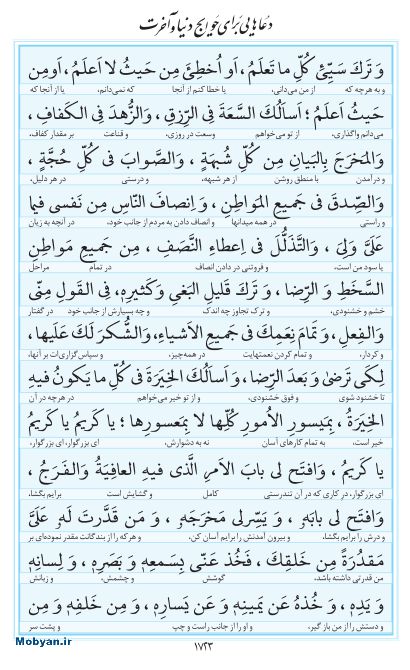 دعاهایی برای حوایج دنیا و آخرت
وَ تَرکَ سَیِّئِ کُلِّ ما تَعلَمُ، اَو اُخطِئُ مِن حَیثُ لا اَعلَمُ، اَو مِن
و به هرچه که از من می‌دانی، یا خطا کنم از آنجا که نمی‌دانم، یا از آنجا که
حَیثُ اَعلَمُ؛ اَساَلُکَ السَّعَةَ فِی الرِّزقِ، وَالزُّهدَ فِی الکَفافِ،
می‌دانم واگذاری، از تو می‌خواهم وسعت در روزی، و قناعت بر مقدار کفاف،
وَالمَخرَجَ بِالبَیانِ مِن کُلِّ شُبهَةٍ، وَالصَّوابَ فی کُلِّ حُجَّةٍ،
و درآمدن با منطق روشن از هر شبهه، و درستی در هر دلیل،
وَالصِّدقَ فی جَمیعِ المَواطِنِ، وَ اِنصافَ النّاسِ مِن نَفسی فیما
و راستی در همه میدانها و انصاف دادن به مردم از جانب خود، در آنچه به زیان
عَلَیَّ وَلِیَ، وَالتَّذَلُّلَ فی اِعطاءِ النَّصَفِ، مِن جَمیعِ مَواطِنِ
یا سود من است، و فروتنی در دادن انصاف در تمام مراحل
السَّخَطِ وَ الرِّضا، وَ تَرکَ قَلیلِ البَغیِ وَ کَثیرِهِ، فِی القَولِ مِنّی
خشم و خشنودی، و ترک تجاوز چه اندک و چه بسیارش از جانب خود در گفتار
وَالفِعلِ، وَ تَمامَ نِعَمِکَ فی جَمیعِ الاَشیاءِ، وَالشُّکرَ لَکَ عَلَیها،
و کردار، و تمام کردن نعمتهایت در همه‌چیز، و سپاس‌گزاری‌ات بر آنها،
لِکَی تَرضیٰ وَ بَعدَ الرِّضا، وَ اَساَلُکَ الخِیَرَةَ فی کُلِّ ما یَکُونُ فیهِ
تا خشنود شوی و فوق خشنودی، و از تو خیر می‌خواهم در هرچه در آن
الخِیَرَةُ، بِمَیسورِ الاُمورِ کُلِّها لا بِمَعسورِها؛ یا کَریمُ یا کَریمُ
خیر است، به تمام کارهای آسان نه به دشوارش، ای بزرگوار، ای بزرگوار،
یا کَریمُ، وَافتَح لی بابَ الاَمرِ الَّذی فیهِ العافِیَةُ وَالفَرَجُ،
ای بزرگوار، در کاری که در آن تندرستی کامل و گشایش است برایم بگشا،
وَافتَح لی بابَهُ، وَ یَسِّر لی مَخرَجَهُ، وَ مَن قَدَّرتَ لَهُ عَلَیَّ
و درش را برایم بگشا، و بیرون آمدنش را برایم آسان کن، و هرکه را از بندگانت مقدر نموده‌ای بر
مَقدُرَةً مِن خَلقِکَ، فَخُذ عَنّی بِسَمعِهِ وَ بَصَرِهِ، وَ لِسانِهِ
من قدرتی داشته باشد، گوشش و چشمش، و زبانش
وَ یَدِهِ، وَ خُذهُ عَن یَمینِهِ وَ عَن یَسارِهِ، وَ مِن خَلفِهِ وَ مِن
و دستش را از من باز گیر، و او را از جانب راست و چپ و پشت سر
۱۷۲۳
Mobyan.ir